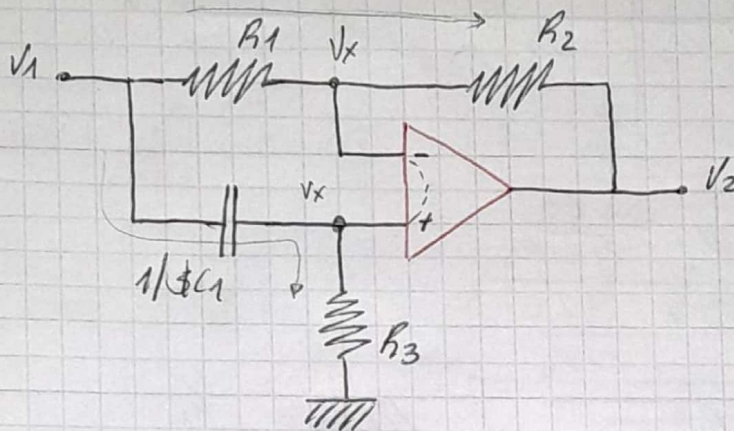 V1
R1
Vx
R2
-
Vx
+
V2
1/$C1
R3